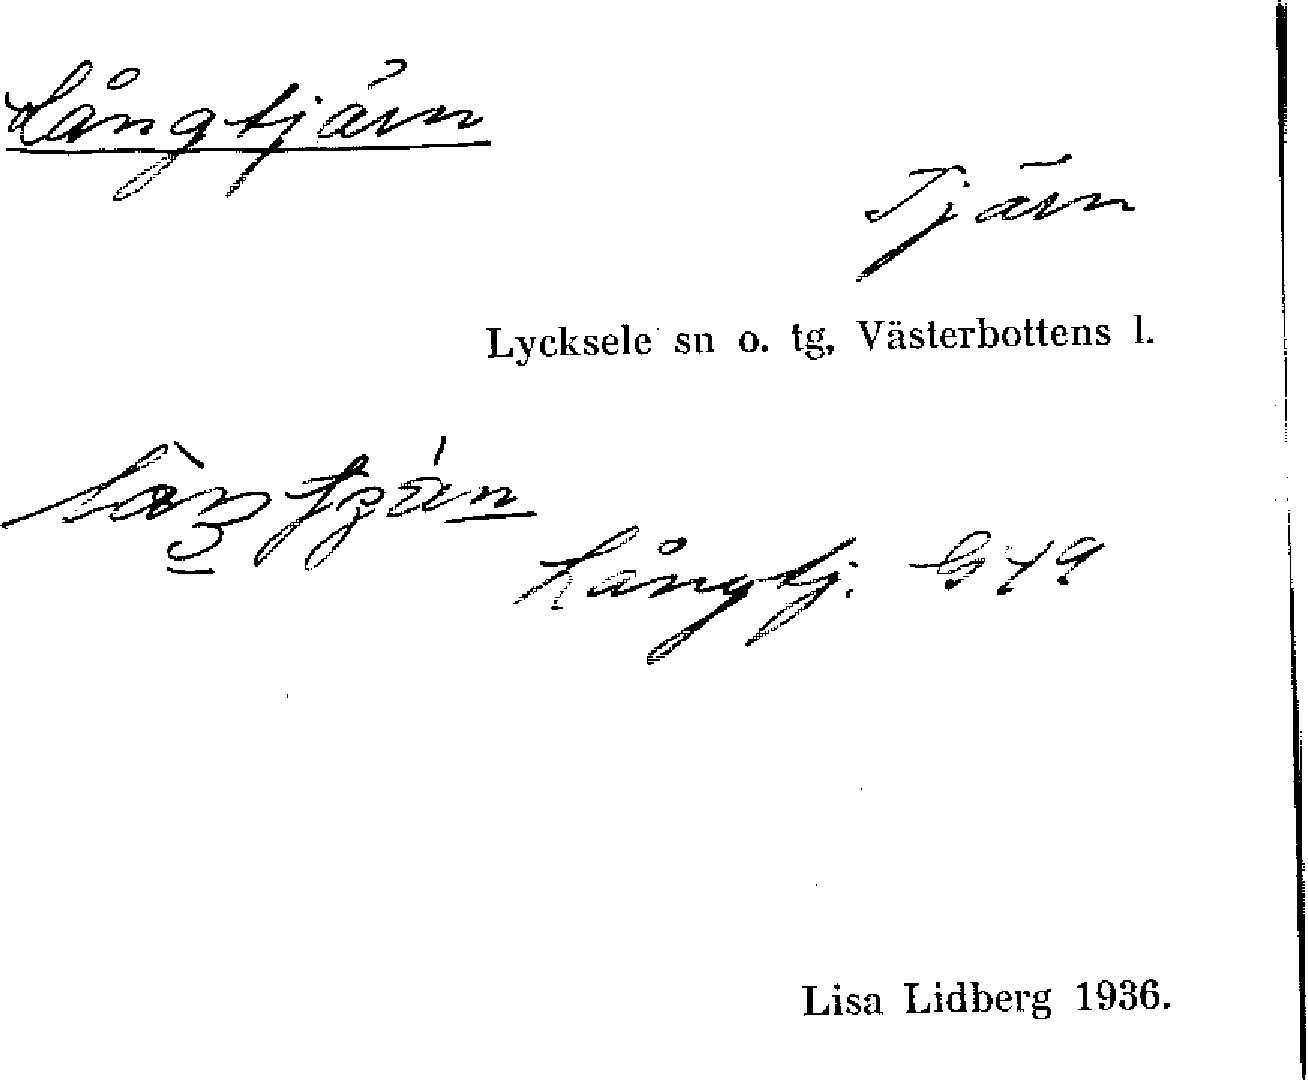 Långtjärn
Tjärn
Lycksele sn o. tg, Västerbottens l.
Långtj. G49
Lisa Lidberg 1936.